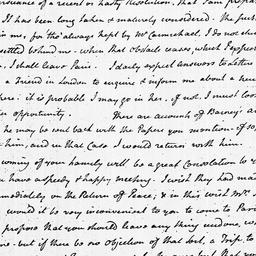 rsuance of a recent or hasty Resolution, that I am prepar
It has been long taken & maturely considered. The pub
in me, for tho' always kept by Mr Carmichael, I do not chu
settled behind me - when that obstacle ceases, which I expect
. I shall leave Paris. I daily expect answers to Letters
a friend in London to enquire & inform me about a hous
here. it is probable I may go in her. if not. I must loo
er opportunity. There are accounts of Barney's arr
he may be sent back with the Papers you mention - if so,
him, and in that Case I would return with him.
coming of your family will be a great Consolation to y
u have a speedy & happy meeting. I wish they had ma
mmediately on the Return of Peace, & in this wish Mrs.
would it be very inconvenient to you to come to Paris
propose that you should leave any thing undone, wh
one - but if there be no objection of that Sort, a Trip to
but that you